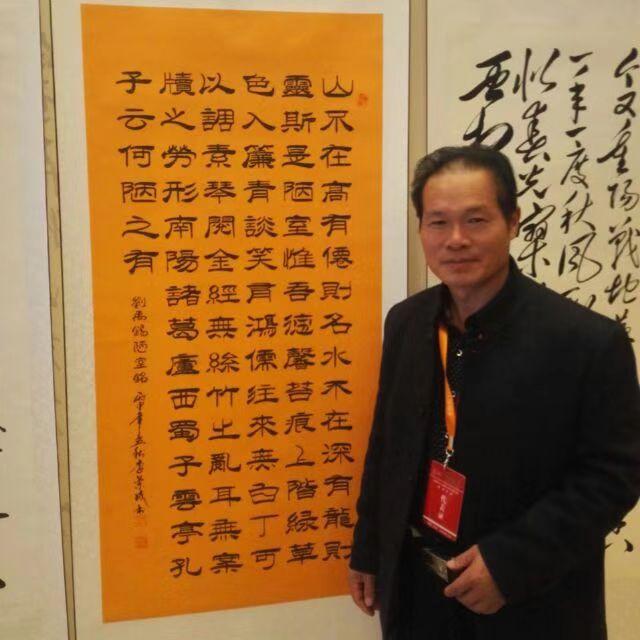 山不在高有僊則名水不在深有龍則
靈斯是陋室惟吾德馨苔痕上階綠草
色入簾青談笑有鴻儒往來無白丁可
以調素琴閱金經無絲竹之亂耳無案
牘之勞形南陽諸葛廬西蜀子雲亭孔
子云何陋之有
劉禹錫陋室銘
今又重陽戰地
一年一度秋風
似春光寥